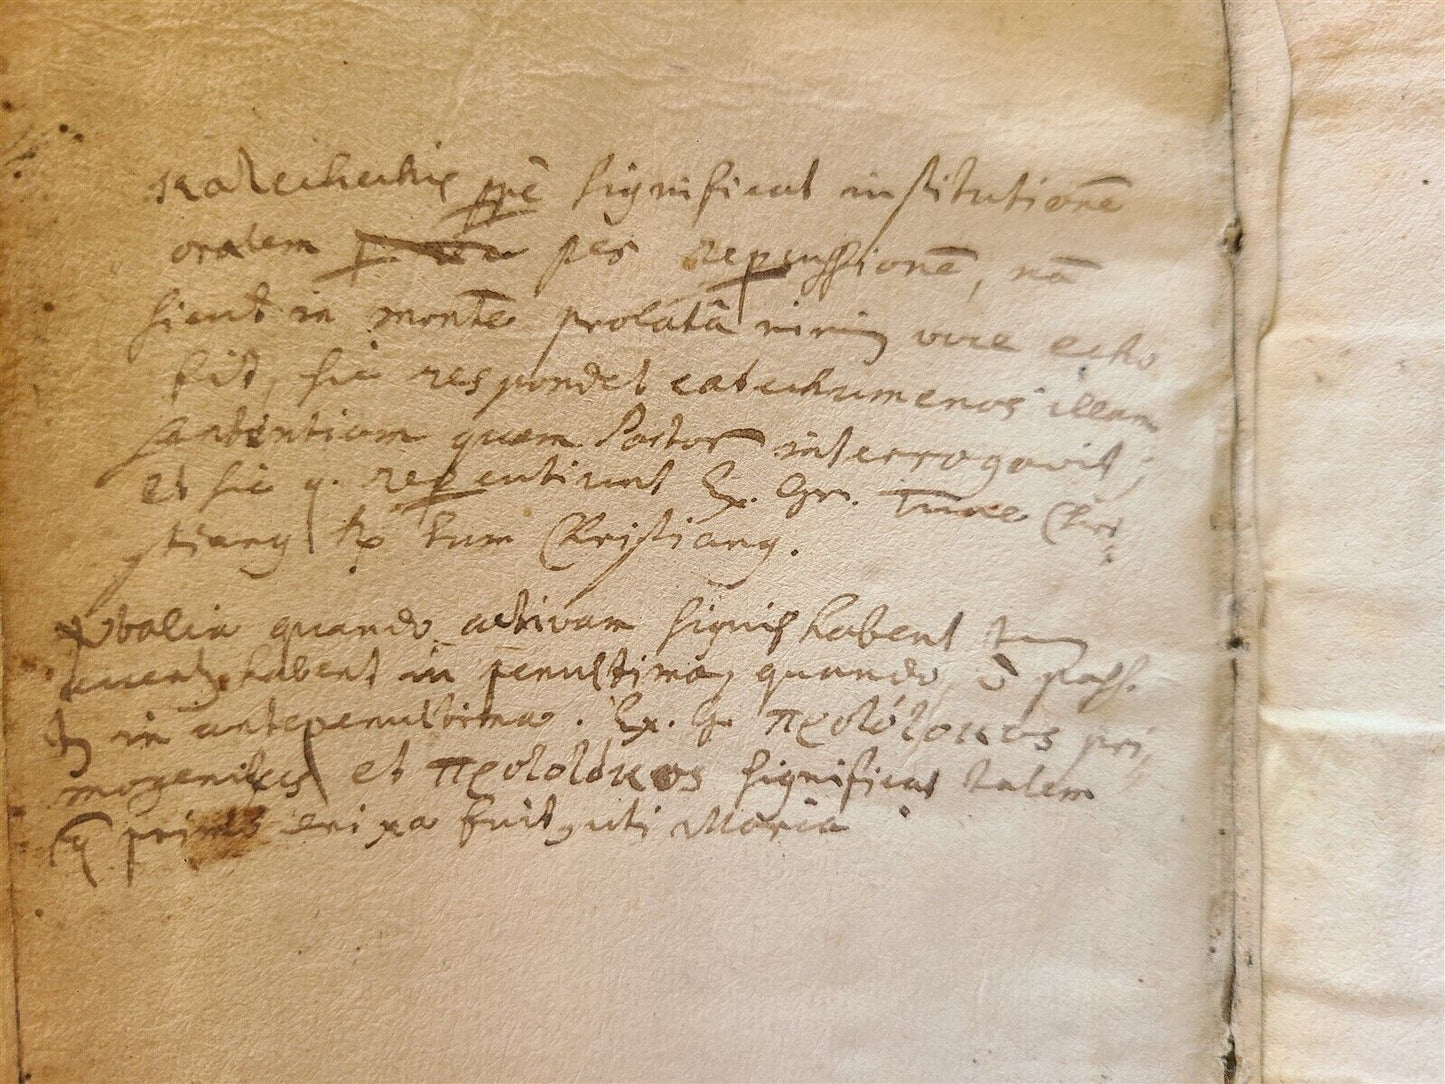 significat institutionē
oralem per repercussionē, nā
sicut in monte prolatâ voce echo
fit, sic respondet catechumenos illam
sententiam quam Pastor interrogavit,
et sic Ex. Gr. Tune Chri
stianus tum Christianus.
Vbalia quando activam habent
habent in penultima, quando pass.
in antepenultima. Ex. G. πρωτότοκος pri,
mogenitus et πρωτοτόκος significat talem
enixa fuit, uti Maria